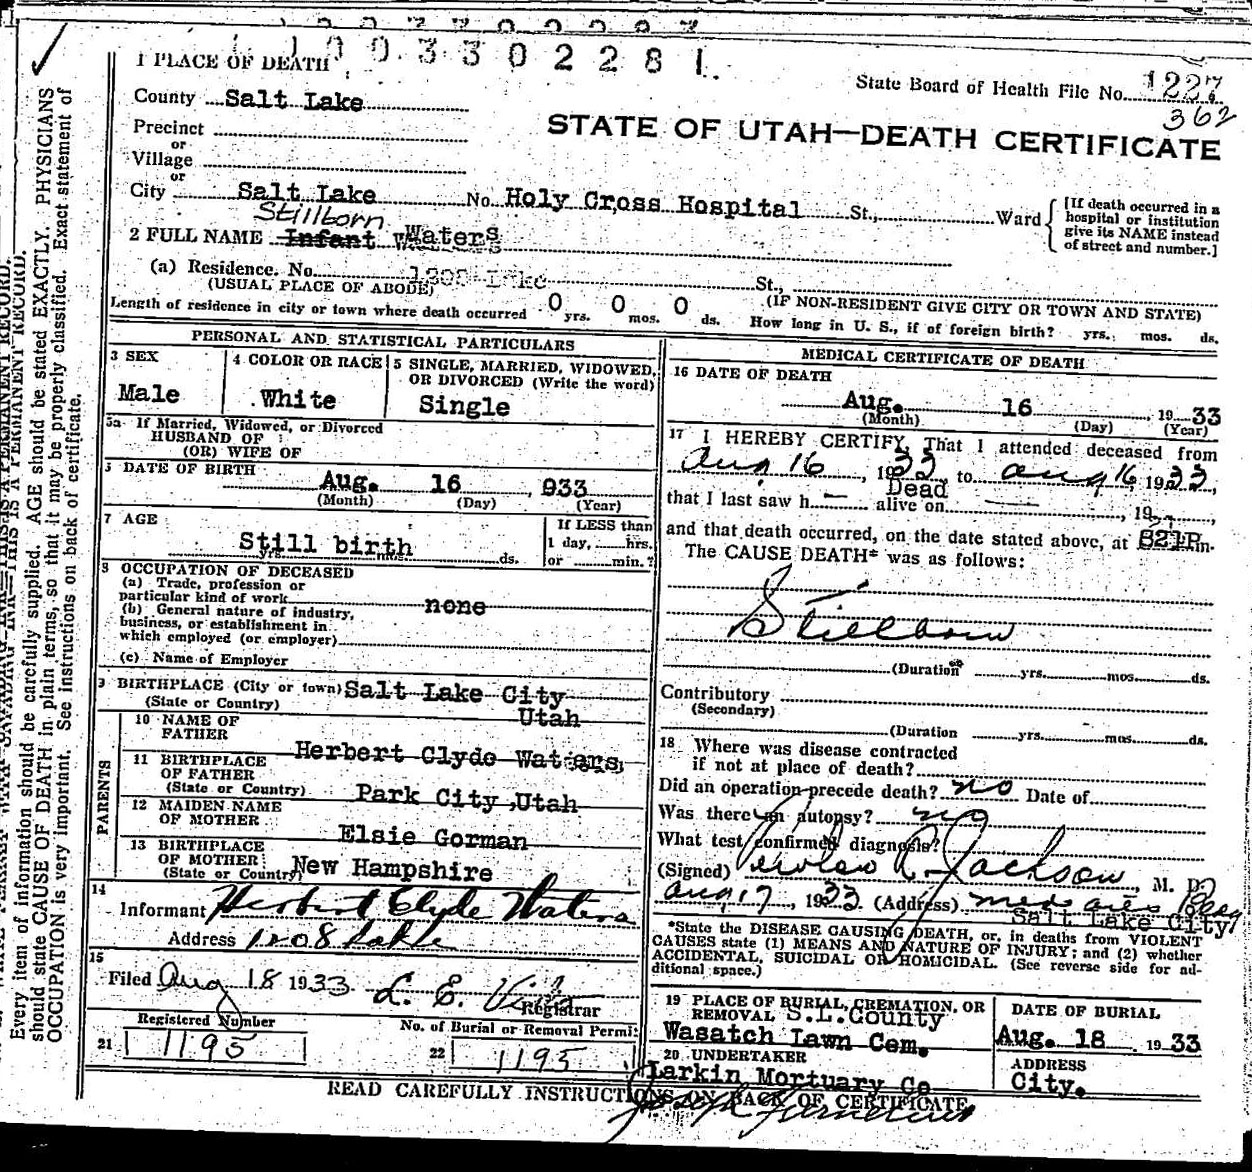 1003302281
1 PLACE OF DEATH
State Board of Health File No. 1227
362
County Salt Lake
STATE OF UTAH—DEATH CERTIFICATE
Precinct
or
Village
or
City Salt Lake No. Holy Cross Hospital St., Ward
[If death occurred in a hospital or institution give its NAME instead of street and number.]
Stillborn
2 FULL NAME Infant Waters
(a) Residence. No. 1208 Lake St.,
(USUAL PLACE OF ABODE) (IF NON-RESIDENT GIVE CITY OR TOWN AND STATE)
Length of residence in city or town where death occurred 0 yrs. 0 mos. 0 ds. How long in U. S., if of foreign birth? yrs. mos. ds.
PERSONAL AND STATISTICAL PARTICULARS
3 SEX
Male
4 COLOR OR RACE
White
5 SINGLE, MARRIED, WIDOWED, OR DIVORCED (Write the word)
Single
5a If Married, Widowed, or Divorced
HUSBAND OF
(OR) WIFE OF
DATE OF BIRTH
Aug. 16, 933
(Month) (Day) (Year)
7 AGE
Still birth
yrs. mos. ds.
If LESS than
1 day, hrs.
or min.?
8 OCCUPATION OF DECEASED
(a) Trade, profession or
particular kind of work none
(b) General nature of industry,
business, or establishment in
which employed (or employer)
(c) Name of Employer
9 BIRTHPLACE (City or town) Salt Lake City
(State or Country) Utah
PARENTS
10 NAME OF
FATHER Herbert Clyde Waters
11 BIRTHPLACE
OF FATHER
(State or Country) Park City, Utah
12 MAIDEN NAME
OF MOTHER Elsie Gorman
13 BIRTHPLACE
OF MOTHER
(State or Country) New Hampshire
14
Informant Herbert Clyde Waters
Address 1208 Lake
15
Filed Aug 18 1933 L. E.
Registrar
Registered Number
21 1195
No. of Burial or Removal Permit
22 1195
MEDICAL CERTIFICATE OF DEATH
16 DATE OF DEATH
Aug. 16, 1933
(Month) (Day) (Year)
17 I HEREBY CERTIFY, That I attended deceased from
Aug 16, 1933 to Aug 16, 1933,
Dead
that I last saw h— alive on — , 19
and that death occurred, on the date stated above, at 821P m.
The CAUSE DEATH* was as follows:
Stillborn
(Duration yrs. mos. ds.
Contributory
(Secondary)
(Duration yrs. mos. ds.
18 Where was disease contracted
if not at place of death?
Did an operation precede death? no Date of
Was there an autopsy? no
What test confirmed diagnosis?
(Signed) R. Jackson, M. D.
Aug 17, 1933 (Address) Med Arts Bldg
Salt Lake City
*State the DISEASE CAUSING DEATH, or, in deaths from VIOLENT
CAUSES state (1) MEANS AND NATURE OF INJURY; and (2) whether
ACCIDENTAL, SUICIDAL OR HOMICIDAL. (See reverse side for ad-
ditional space.)
19 PLACE OF BURIAL, CREMATION, OR
REMOVAL S.L.County
Wasatch Lawn Cem.
DATE OF BURIAL
Aug. 18 1933
20 UNDERTAKER
Larkin Mortuary Co
ADDRESS
City.
READ CAREFULLY INSTRUCTIONS ON BACK OF CERTIFICATE
Joseph
Every item of information should be carefully supplied. AGE should be stated EXACTLY. PHYSICIANS
should state CAUSE OF DEATH in plain terms, so that it may be properly classified. Exact statement of
OCCUPATION is very important. See instructions on back of certificate.